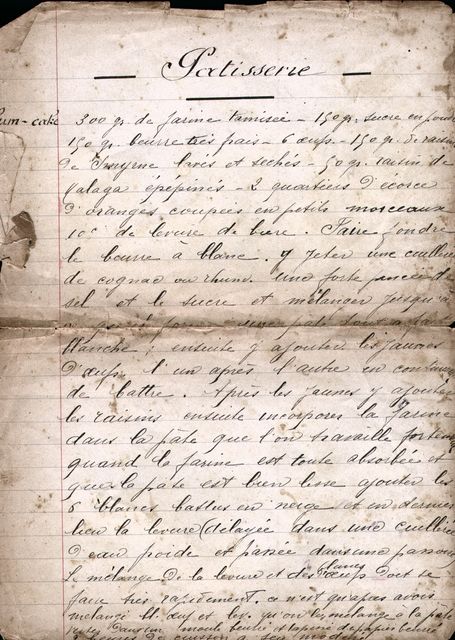 Patisserie
um-cake 300 gr. de farine tamisée - 150 gr. sucre en poud
150 gr. beurre très frais - 6 œufs - 150 gr. de raisin
de Smyrne lavés et séchés - 50 gr. raisin de
Malaga épépinés - 2 quartiers d'écorce
d'oranges coupées en petits morceaux
10c de levure de bière. Faire fondre
le beurre à blanc. y jeter une cuillère
de cognac ou rhum. Une forte pincée de
sel et le sucre et mélanger jusqu'à
blanche; ensuite y ajouter les jaunes
d'œufs l'un après l'autre en continuant
de battre. Après les jaunes y ajouter
les raisins ensuite incorporer la farine
dans la pâte que l'on travaille fortem
quand la farine est toute absorbée et
que la pâte est bien lisse ajouter les
6 blancs battus en neige et en dernier
lieu la levure (délayée dans une cuillère
d'eau froide et passée dans une passoire
Le mélange de la levure et des blancs d'œufs doit se
faire très rapidement. ce n'est qu'après avoir
mélangé bl. œuf et lev. qu'on les mélange à la pâte
moule beurré et